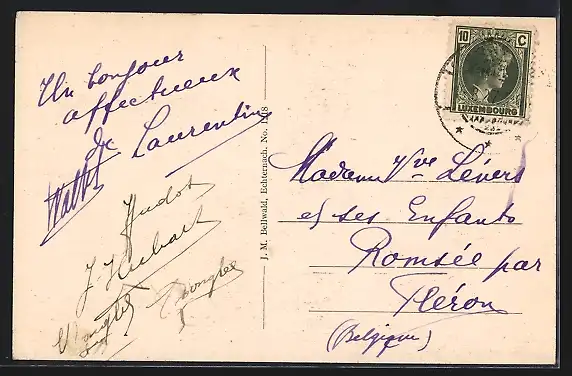 Un bonjour
affectueux
de Laurentin
Judos
J Hubart
J. M. Bellwald, Echternach, No. 
10 C
LUXEMBOURG
Madame Vve Lévers
et ses Enfants
Romsée par
Fléron
(Belgique)